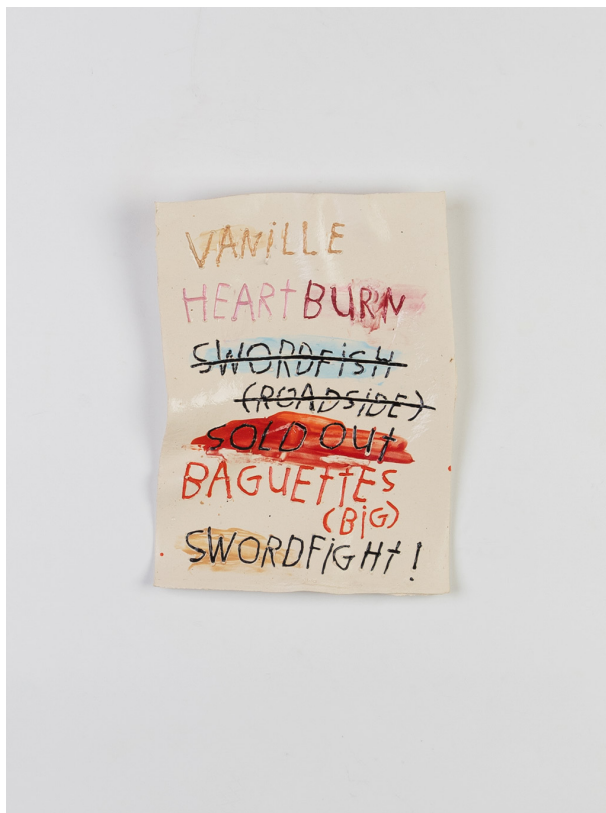 VANiLLE
HEARt BURN
SWORDFiSH
(ROADSiDE)
SOLD OUt
BAGUEttES
(BiG)
SWORDFiGHt!